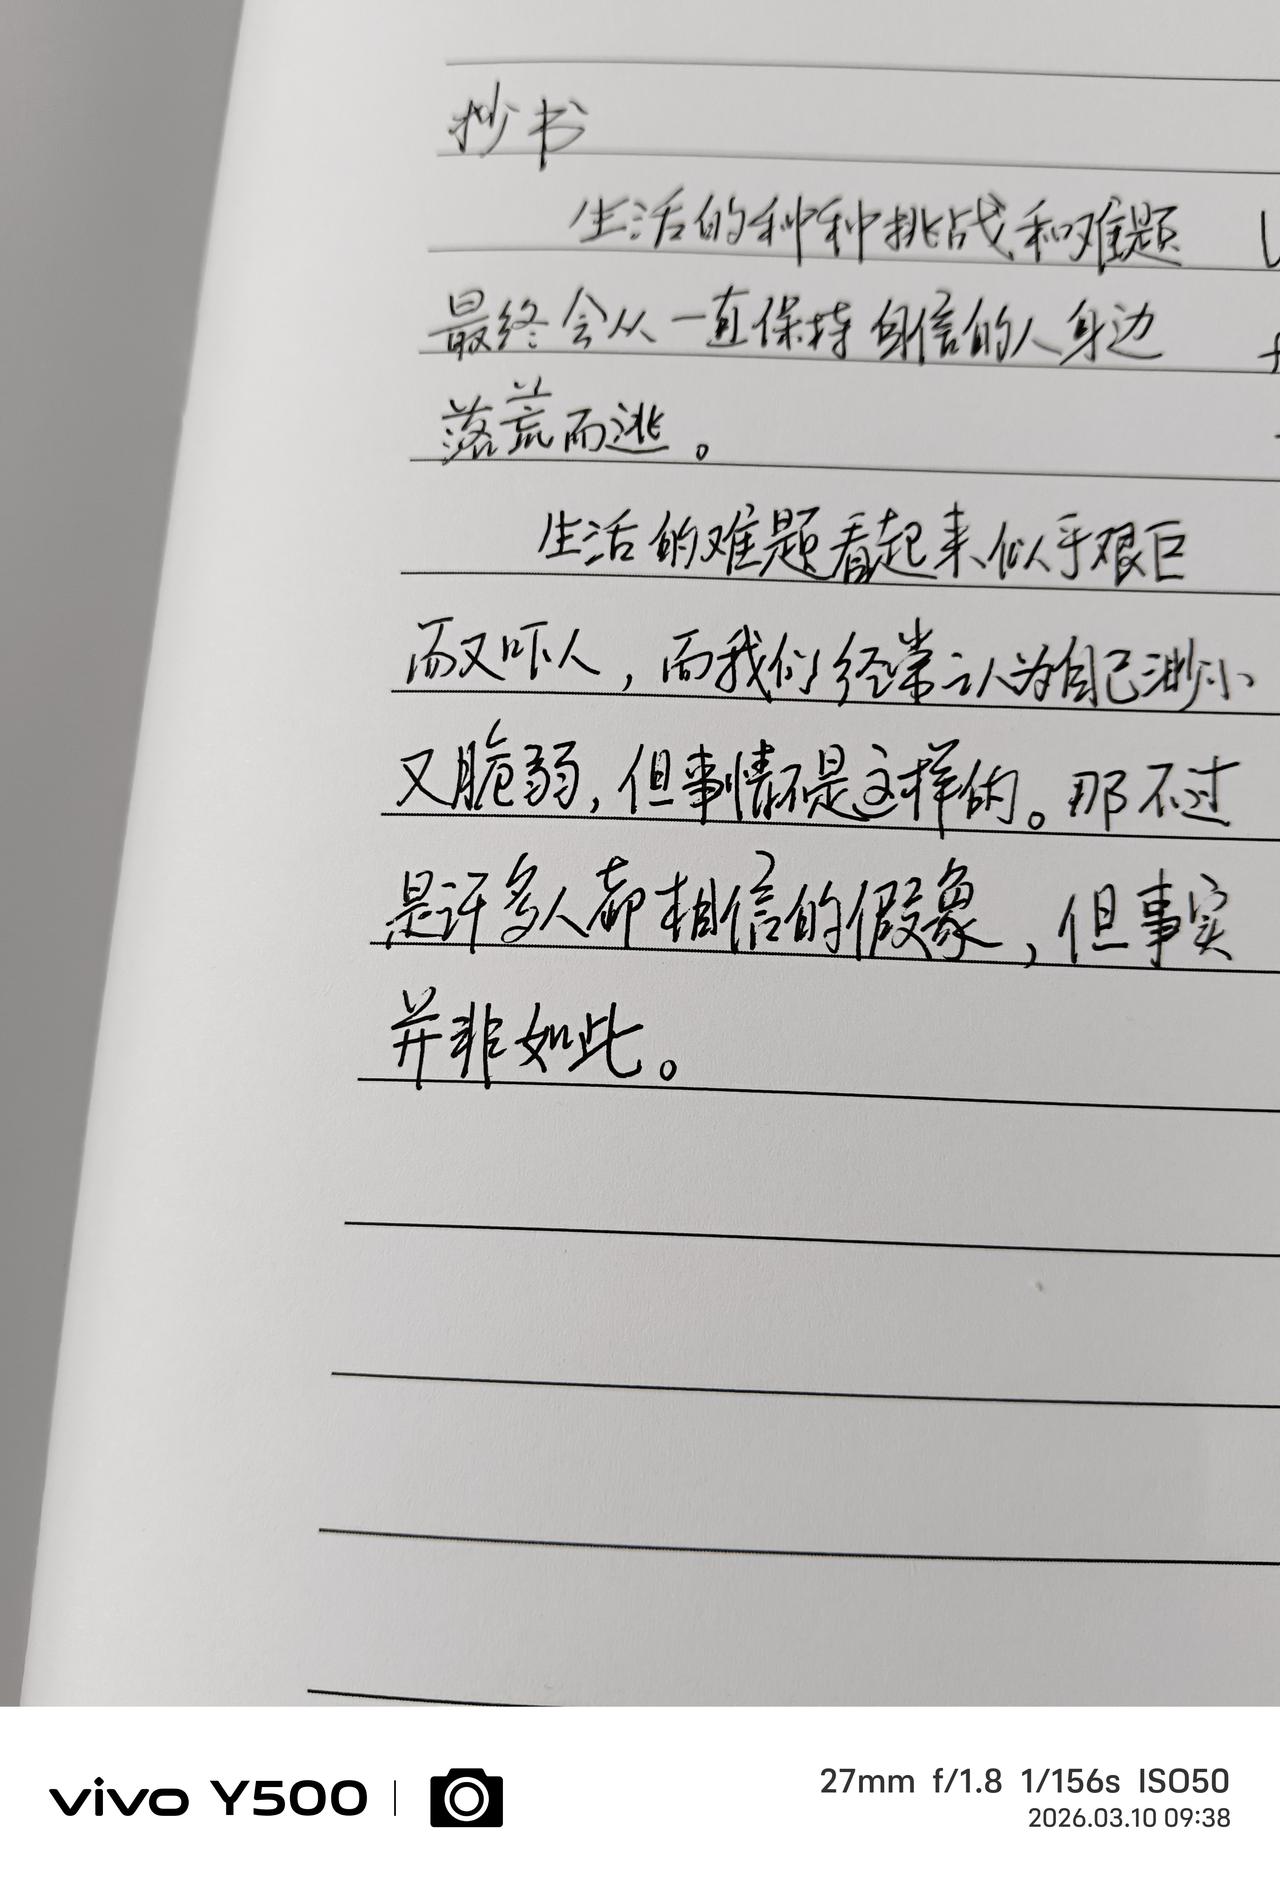 抄书
生活的种种挑战和难题
最终会从一直保持自信的人身边
落荒而逃。
生活的难题看起来似乎艰巨
而又吓人，而我们经常认为自己渺小
又脆弱，但事情不是这样的。那不过
是许多人都相信的假象，但事实
并非如此。
vivo Y500
27mm f/1.8 1/156s ISO50
2026.03.10 09:38